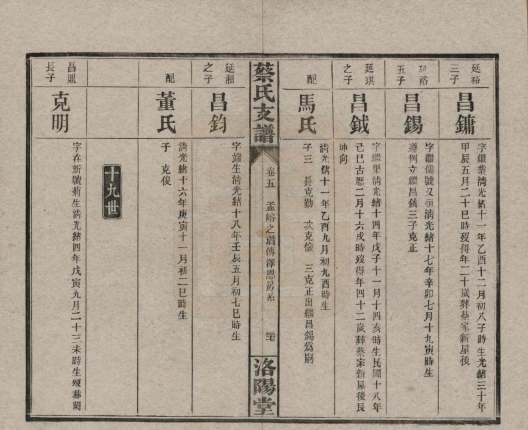 延裕
三子
昌鏞
字繼業清光緒十一年乙酉十二月初八子時生光緒三十年
甲辰五月二十巳時歿得年二十歲葬蔡家新屋後
延裕
五子
昌錫
字繼儒號又恒清光緒十七年辛卯七月十九寅時生
遵例立繼昌鉞三子克正
延琪
之子
昌鉞
字繼 清光緒十四年戊子十一月十四亥時生民國十八年
己巳古曆二月十六戌時歿得年四十二歲葬蔡家新屋後艮
坤向
配
馬氏
清光緒十一年乙酉九月初九酉時生
子三 長克勤 次克儉 三克正出繼昌錫爲嗣
蔡氏支譜
卷五 孟 之 傳澤恩房系
洛陽堂
延湘
之子
昌鈞
字 生清光緒十八年壬辰五月初七巳時生
配
董氏
清光緒十六年庚寅十一月初二巳時生
子 克俊
十九世
昌
長子
克明
字在新號蔚生清光緒四年戊寅九月二十三未時生